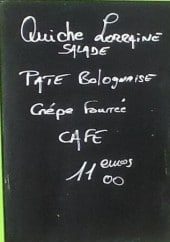 Quiche Lorraine
SALADE
PATE Bolognaise
Crêpe Fourrée
CAFE
11 euros
00